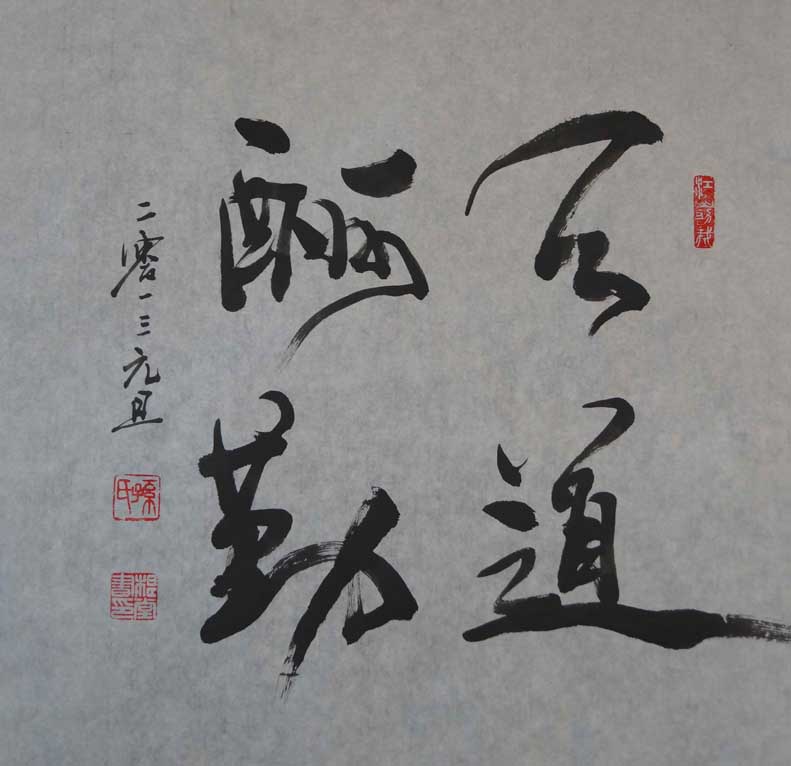 天道
酬勤
二零一三元旦
孫氏